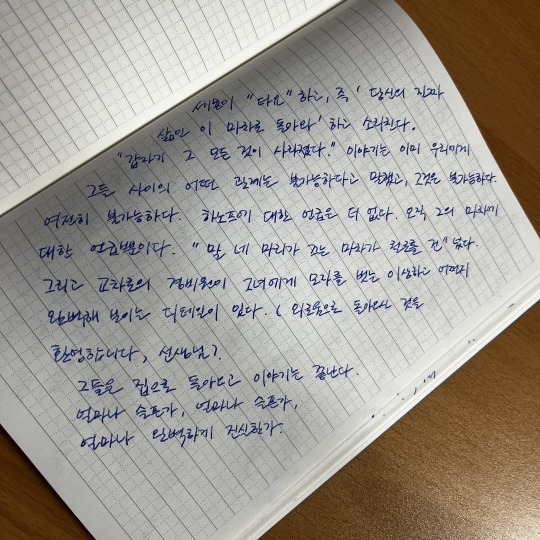 세묜이 "타요" 하고, 즉 '당신의 진짜
삶인 이 마차로 돌아와' 하고 소리친다.
"갑자기 그 모든 것이 사라졌다." 이야기는 이미 우리에게
그들 사이의 어떤 관계는 불가능하다고 말했고, 그것은 불가능하다.
여전히 불가능하다. 하노프에 대한 언급은 더 없다. 오직 그의 마차에
대한 언급뿐이다. "말 네 마리가 끄는 마차가 철로를 건"넜다.
그리고 교차로의 경비원이 그녀에게 모자를 벗는 이상하고 어쩐지
완벽해 보이는 디테일이 있다. (외로움으로 돌아오신 것을
환영합니다, 선생님).
그들은 집으로 돌아오고 이야기는 끝난다.
얼마나 슬픈가, 얼마나 슬픈가,
얼마나 완벽하게 진실한가.